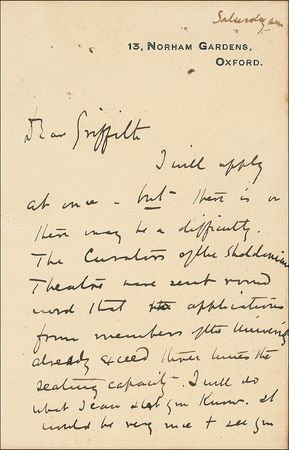 Saturday am
13, NORHAM GARDENS,
OXFORD.
Dear Griffith
I will apply
at once - but there is or
there may be a difficulty.
The Curators of the Sheldonian
Theatre have sent round
word that the applications
from members of the University
already exceed three times the
seating capacity. I will do
what I can & let you know. It
would be very nice to see you